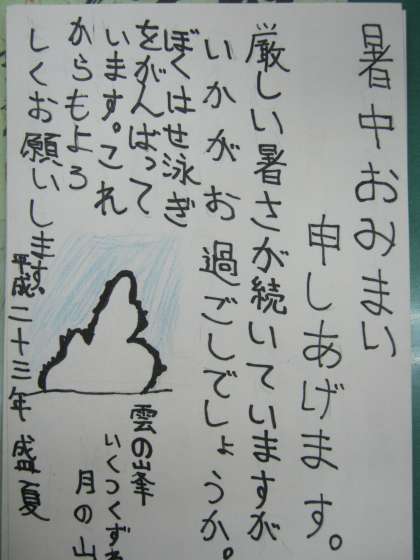 暑中おみまい
申しあげます。
厳しい暑さが続いていますが
いかがお過ごしでしょうか。
ぼくはせ泳ぎ
をがんばって
います。これ
からもよろ
しくお願いします。
雲の峰
いくつくずれ
月の山
平成二十三年 盛夏